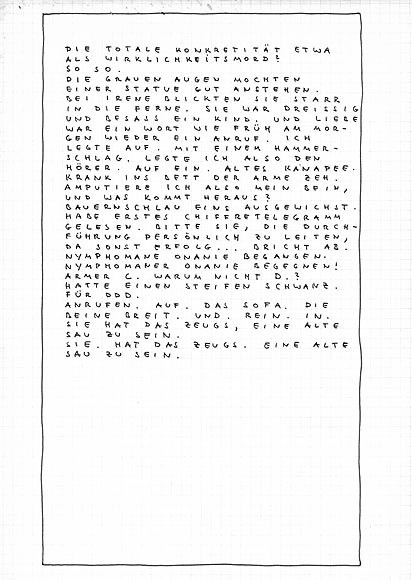 DIE TOTALE KONKRETITÄT ETWA
ALS WIRKLICHKEITSMORD?
SO SO.
DIE GRAUEN AUGEN MOCHTEN
EINER STATUE GUT ANSTEHEN.
BEI IRENE BLICKTEN SIE STARR
IN DIE FERNE. SIE WAR DREISSIG
UND BESASS EIN KIND. UND LIEBE
WAR EIN WORT WIE FRÜH AM MOR-
GEN WIEDER EIN ANRUF. ICH
LEGTE AUF. MIT EINEM HAMMER-
SCHLAG. LEGTE ICH ALSO DEN
HÖRER. AUF EIN. ALTES KANAPEE.
KRANK INS BETT DER ARME ZEH.
AMPUTIERE ICH ALSO MEIN BEIN,
UND WAS KOMMT HERAUS?
BAUERNSCHLAU EINS AUSGEWICHST.
HABE ERSTES CHIFFRETELEGRAMM
GELESEN. BITTE SIE, DIE DURCH-
FÜHRUNG PERSÖNLICH ZU LEITEN,
DA SONST ERFOLG... BRICHT AB.
NYMPHOMANE ONANIE BEGANGEN.
NYMPHOMANER ONANIE BEGEGNEN!
ARMER C. WARUM NICHT D.?
HATTE EINEN STEIFEN SCHWANZ.
FÜR DDD.
ANRUFEN. AUF. DAS SOFA. DIE
BEINE BREIT. UND. REIN. IN.
SIE HAT DAS ZEUGS, EINE ALTE
SAU ZU SEIN.
SIE. HAT DAS ZEUGS. EINE ALTE
SAU ZU SEIN.